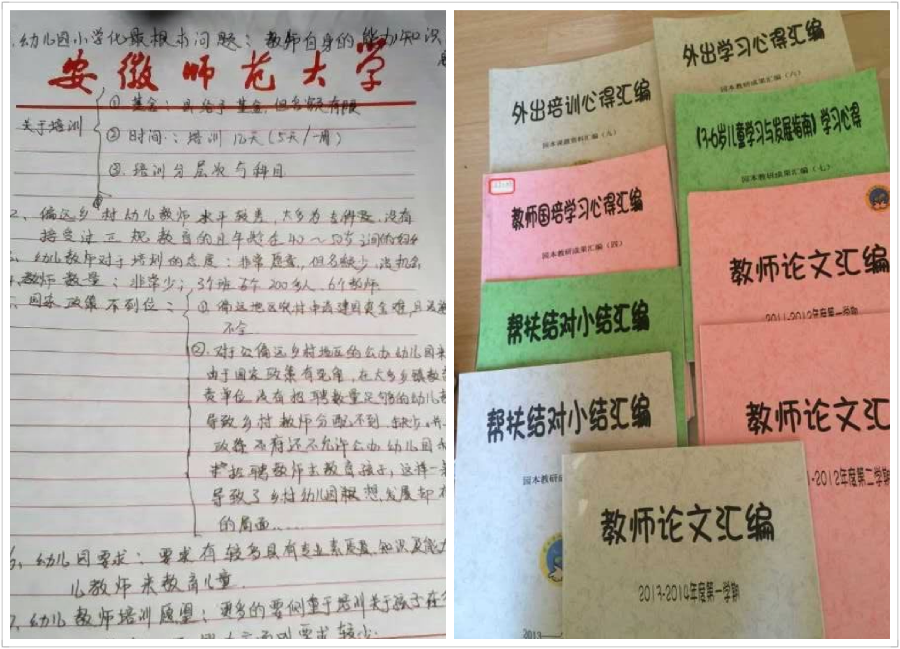 、幼儿园小学化最根本问题：教师自身的能力知识
安徽师范大学
关于培训
① 基金：
② 时间：培训12天（5天/一周）
③ 培训分层次与科目
2、偏远乡村幼儿教师水平较差，大多为
接受过三 规教育的且年龄在40～50岁之间的
、幼儿教师对于培训的态度：非常愿意，但名额少，没机会
、教师数量：非常少；3个班 200多人，6个教师
、国家政策不到位：
① 偏远地区农村申请建园资金难，且
② 对于 偏远乡村地区的公办幼儿园来
由于国家政策有 ，在大多乡镇教
责单位，没有招聘数量足够的幼儿教
导致乡村教师分配不到，缺少，并
政府还不允许公办幼儿园
招聘教师来教育孩子，这样一来
导致了乡村幼儿园 想发展却不
的局面……
6、幼儿园要求：要求有较多具有专业素质，知识及能力
儿教师来教育儿童.
7、幼儿教师培训愿望：更多的要侧重于培训关于孩子在
要求较少.
外出学习心得汇编
园本教研成果汇编（六）
外出培训心得汇编
园本课题资料汇编（九）
《3-6岁儿童学习与发展指南》学习心得
园本教研成果汇编（七）
教师国培学习心得汇编
园本教研成果汇编（四）
教师论文汇编
2011-2012年度第一学期
帮扶结对小结汇编
教师论文汇
1-2012年度第二学期
帮扶结对小结汇编
园本教研成
2013—
教师论文汇编
2013-2014年度第一学期